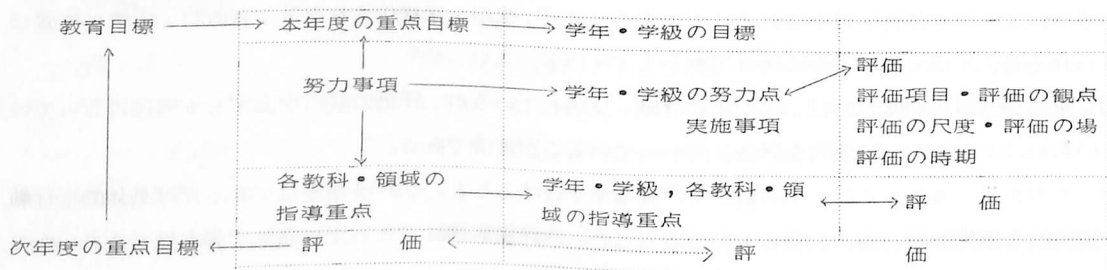 教育目標 → 本年度の重点目標 → 学年・学級の目標
評価
努力事項 → 学年・学級の努力点
評価項目・評価の観点
実施事項
評価の尺度・評価の場
評価の時期
各教科・領域の指導重点 → 学年・学級,各教科・領域の指導重点 ↔ 評　価
次年度の重点目標 ← 評　価 ← → 評　価